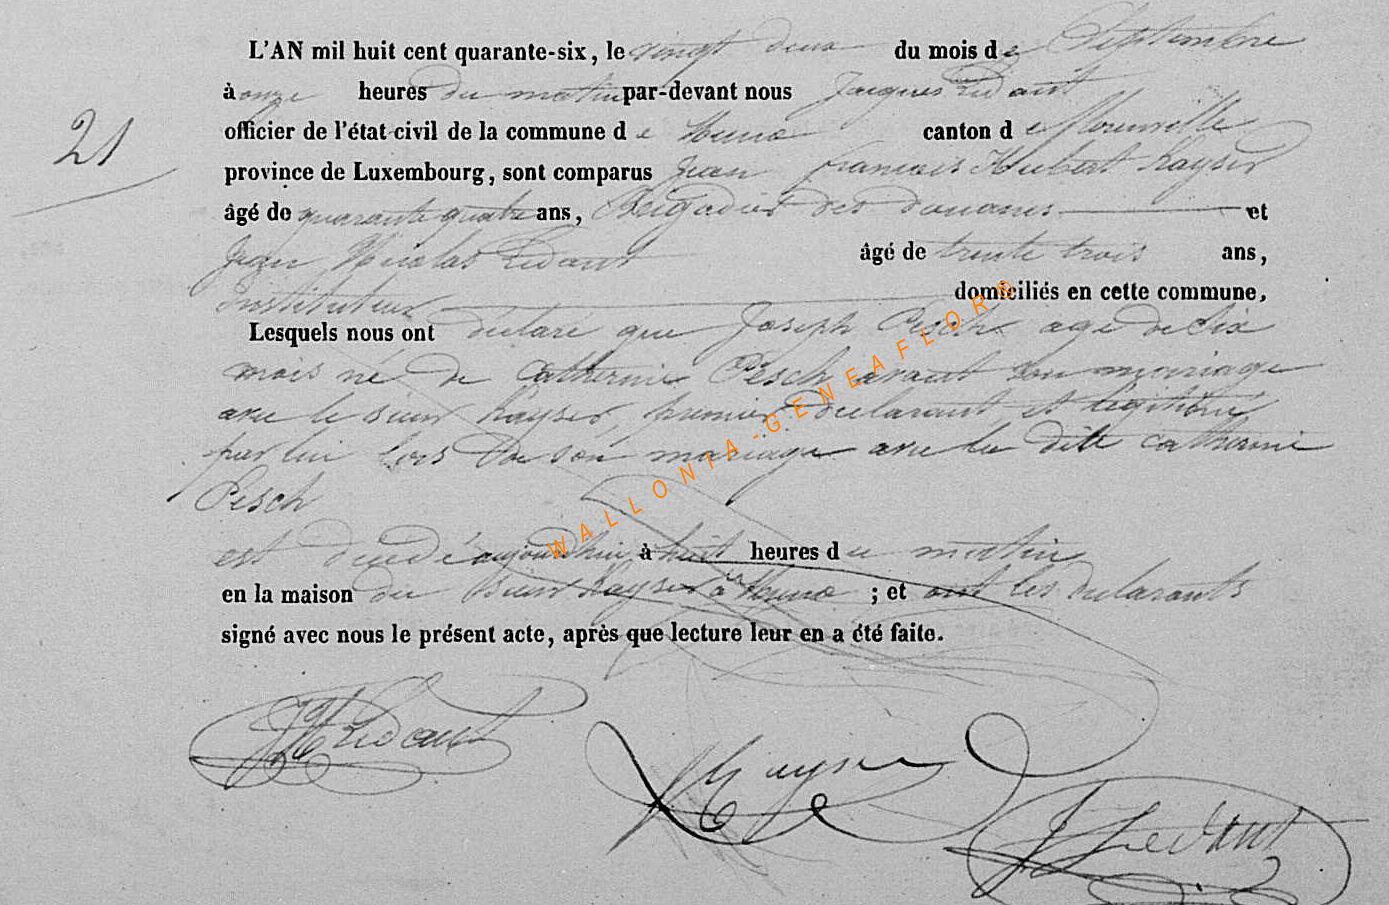 L'AN mil huit cent quarante-six, le vingt deux du mois de Septembre
à onze heures du matin par-devant nous Jacques Lédant
21
officier de l'état civil de la commune de canton de
province de Luxembourg, sont comparus Jean François Hubert Kayser
âgé de quarante quatre ans, Brigadier des douanes et
Jean Nicolas Lédant âgé de trente trois ans,
Instituteur domiciliés en cette commune,
Lesquels nous ont déclaré que Joseph Pesch agé de dix
mois né de Catherine Pesch avant son mariage
avec le sieur Kayser, premier déclarant et légitimé
par lui lors de son mariage avec la dite Catherine
Pesch
est décédé aujourd'hui à huit heures du matin
en la maison du sieur Kayser à ; et ont les déclarants
signé avec nous le présent acte, après que lecture leur en a été faite.
WALLONIA-GENEAFLOR®
Lédant
Kayser
J Lédant